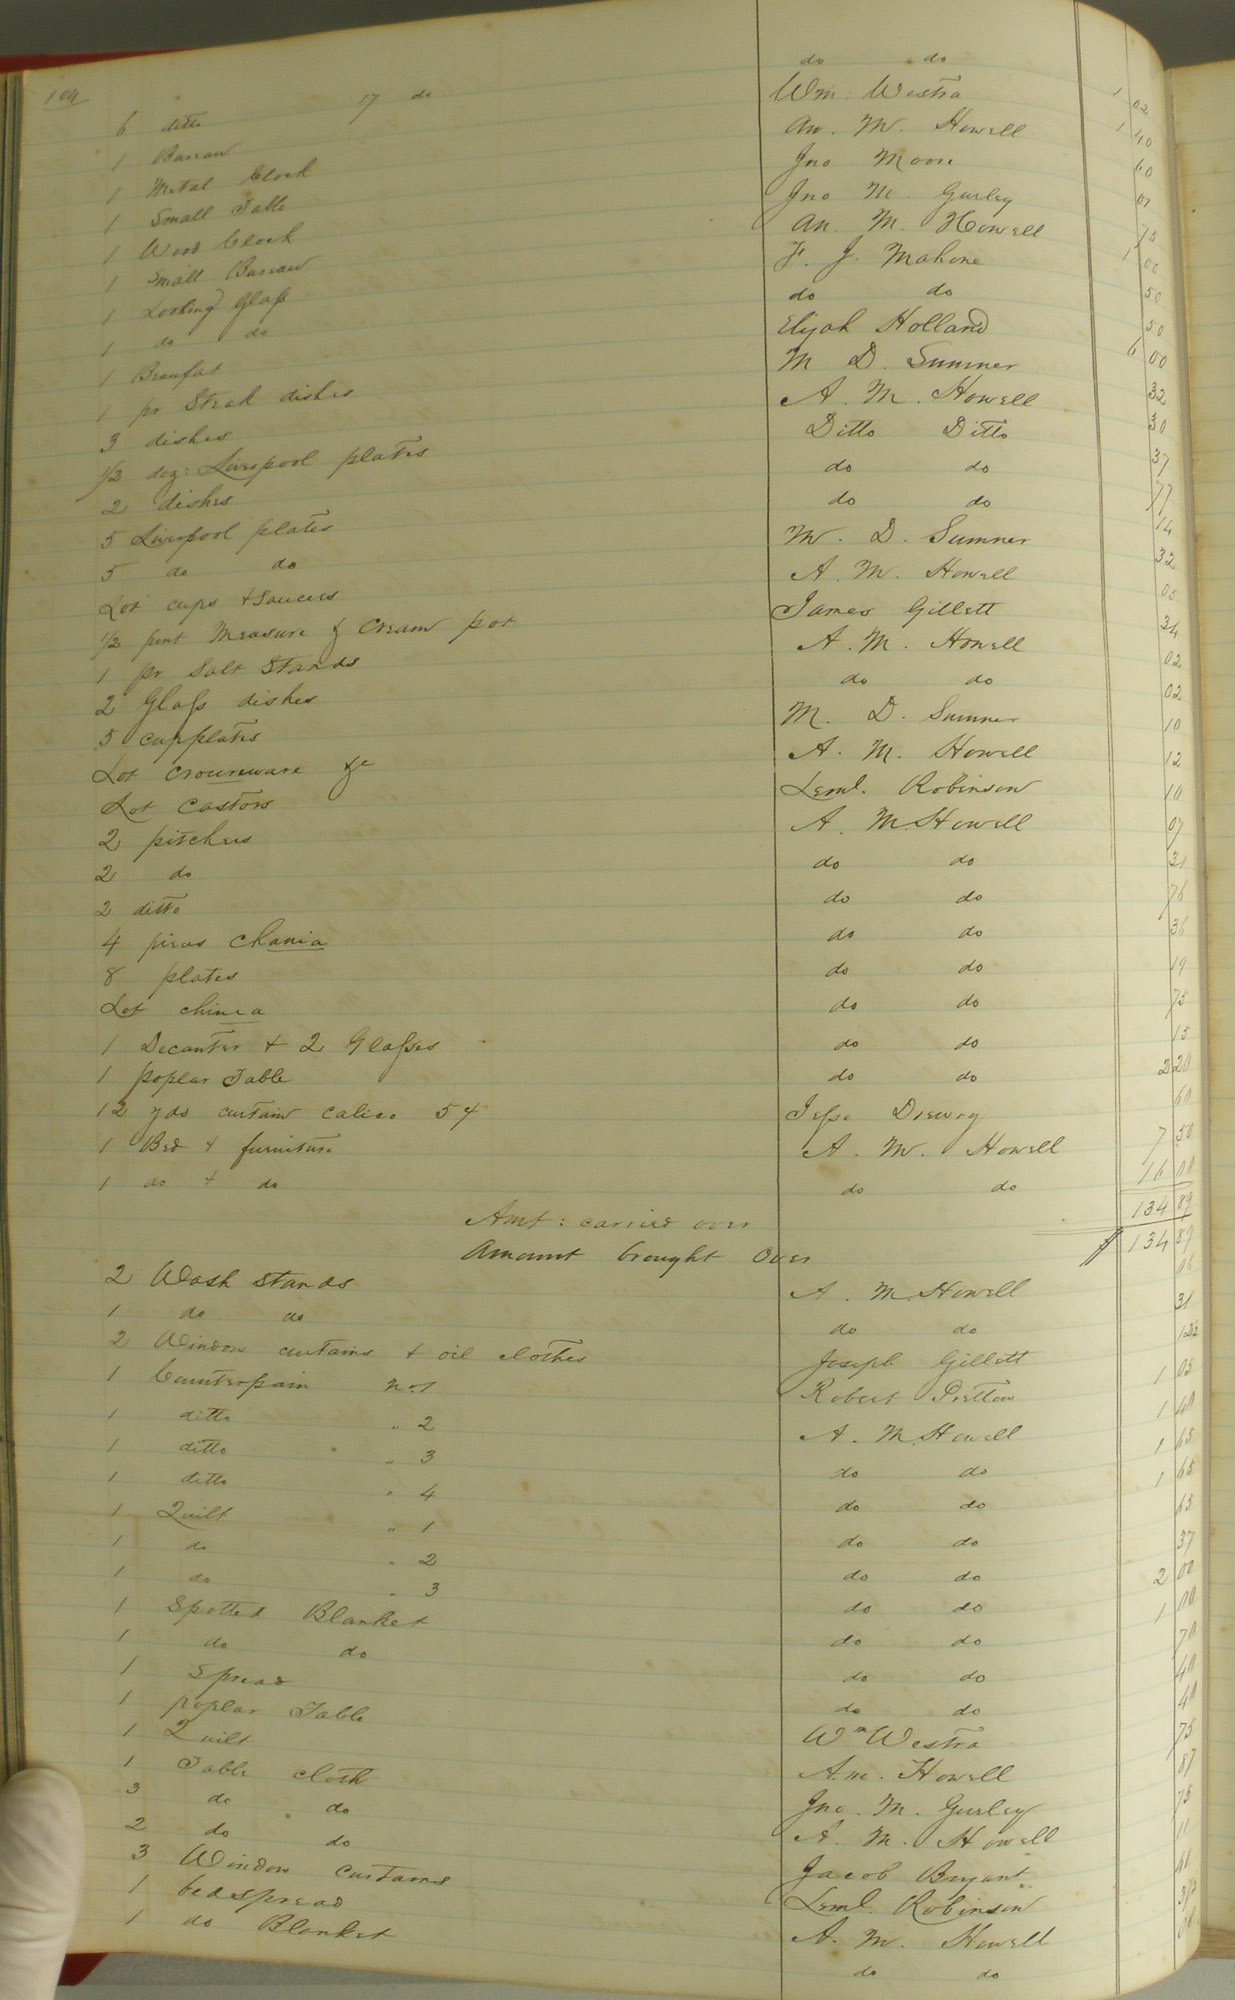 104 17 do do do
6 ditto Wm: Westra 1 02
1 Bureau An. M. Howell 1 40
1 Metal Clock Jno Moore 60
1 Small Table Jno M. Gurley 01
1 Wood Clock An. M. Howell 75
1 Small Bureau F. J. Mahone 1 00
1 Looking Glass do do 50
1 do do Elijah Holland 50
1 Beaufat M D. Sumner 6 00
1 pr Steak dishes A. M. Howell 32
3 dishes Ditto Ditto 30
1/2 doz: Liverpool plates do do 37
2 dishes do do 77
5 Liverpool plates M. D. Sumner 14
5 do do A. M. Howell 32
Lot cups & Saucers James Gillett 05
1/2 pint Measure & Cream pot A. M. Howell 34
1 pr Salt Stands do do 02
2 Glass dishes M. D. Sumner 02
5 cupplates A. M. Howell 10
Lot Crouneware &c Leml. Robinson 12
Lot Castors A. M Howell 10
2 pitchers do do 07
2 do do do 31
2 ditto do do 76
4 pieces Chania do do 36
8 plates do do 19
Lot china do do 75
1 Decanter & 2 Glasses do do 15
1 poplar Table do do 2 20
12 yds curtain calico 5¢ Jesse Drewry 60
1 Bed & furniture A. M. Howell 7 50
1 do & do do do 16 00
Amt: carried over 134 89
Amount brought Over $ 134 89
2 Wash Stands A. M Howell 06
1 do do do do 31
2 Window curtains & oil clothes Joseph Gillett
1 Counterpain No 1 Robert Pretlow 1 05
1 ditto " 2 A. M. Howell 1 40
1 ditto " 3 do do 1 65
1 ditto " 4 do do 1 65
1 Quilt " 1 do do 65
1 do " 2 do do 37
1 do " 3 do do 2 00
1 Spotted Blanket do do 1 00
1 do do do do 70
1 Spread do do 40
1 poplar Table Wm Westra 40
1 Quilt A. M. Howell 75
1 Table cloth Jno. M. Gurley 87
3 do do A. M. Howell 75
2 do do Jacob Bryant 11
3 Window Curtains Leml. Robinson 41
1 bedspread A. M. Howell
1 do Blanket do do